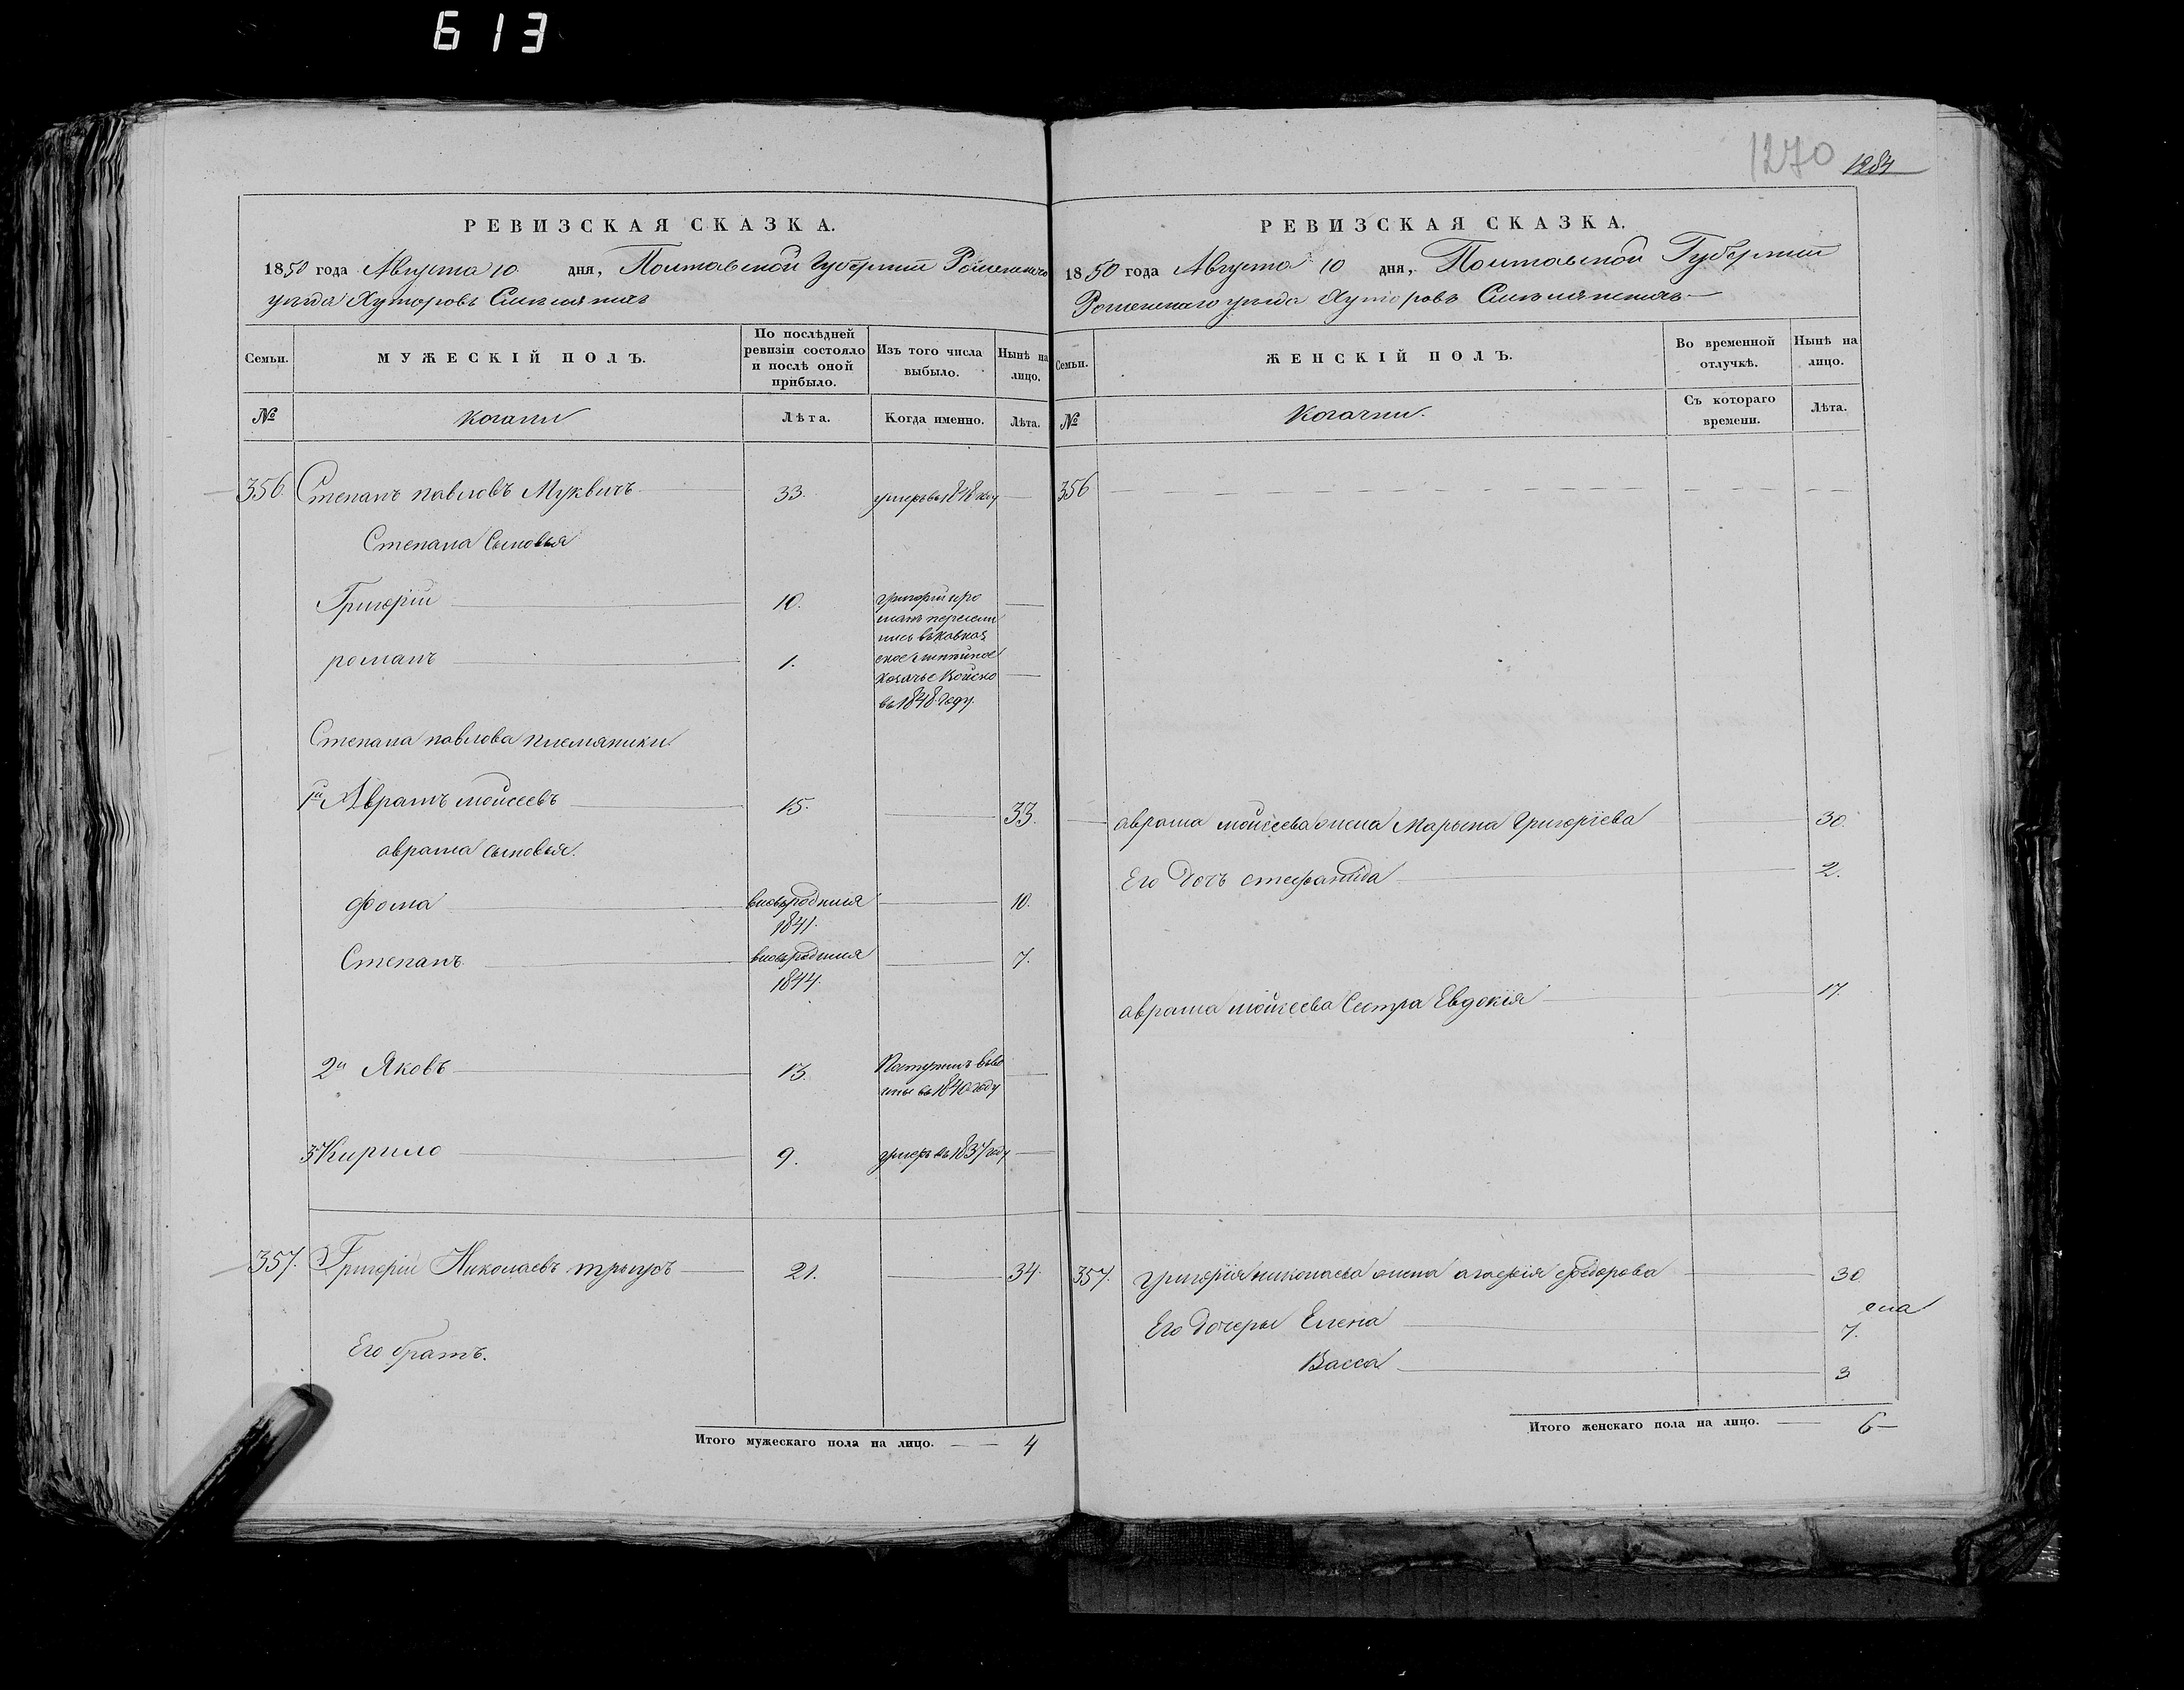 613
1270 1284
РЕВИЗСКАЯ СКАЗКА.
1850 года Августа 10 дня, Полтавской Губерніи Роменскаго
уезда Хуторовъ
Семьи.
МУЖЕСКІЙ ПОЛЪ.
По послѣдней ревизіи состояло и послѣ оной прибыло.
Изъ того числа выбыло.
Нынѣ на лицо.
№
козаки
Лѣта.
Когда именно.
Лѣта.
356. Степанъ павловъ Муквичъ 33. умеръ въ 1848 году
Степана Сыновья
Григорій 10. григорій и ро
манъ пересели
лись въ кавказ
романъ 1. ское линѣйное
козачье Войско
въ 1848 году.
Степана павлова племяники
1й Аврамъ моисеевъ 15. 33.
аврама сыновья.
фома вновьрожденія 10.
1841.
Степанъ вновьрожденія 7.
1844.
2й Яковъ 13.
въ 1840 году
3й Кирило 9. умеръ въ 1837 году
357. Григорій Николаевъ 21. 34.
Его братъ.
Итого мужескаго пола на лицо. 4
РЕВИЗСКАЯ СКАЗКА.
1850 года Августа 10 дня, Полтавской Губерніи
Роменскаго уезда Хуторовъ
Семьи.
ЖЕНСКІЙ ПОЛЪ.
Во временной отлучкѣ.
Нынѣ на лицо.
№
Козачки.
Съ котораго времени.
Лѣта.
356
аврама моисеева жена Марына Григоріева 30.
Его дочь стефанида 2.
аврама моисеева Сестра Евдокія 17.
357. григорія николаева жена агафія федорова 30
Его дочеры Елена 7.
Васса 3
Итого женскаго пола на лицо. 6